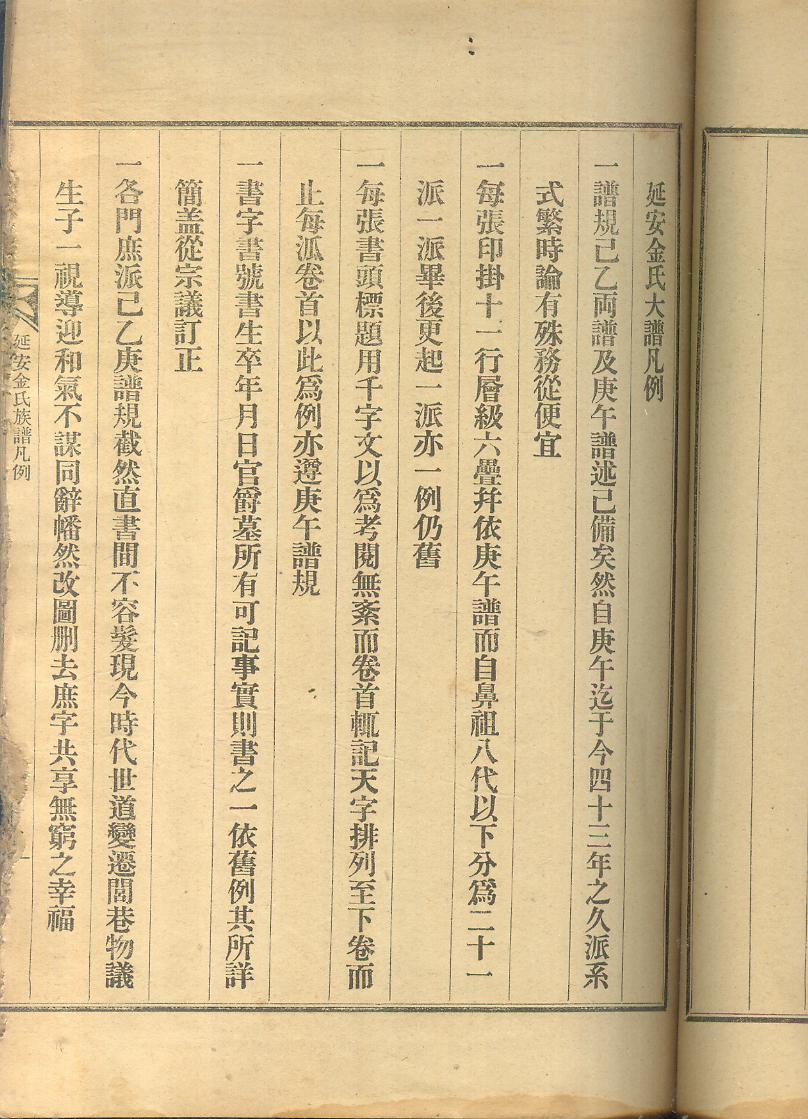 延安金氏大譜凡例
一譜規己乙両譜及庚午譜述已備矣然自庚午迄于今四十三年之久派系
式繁時論有殊務從便宜
一每張印掛十一行層級六疊幷依庚午譜而自鼻祖八代以下分爲二十一
派一派畢後更起一派亦一例仍舊
一每張書頭標題用千字文以爲考閱無紊而卷首輒記天字排列至下卷而
止每派卷首以此爲例亦遵庚午譜規
一書字書號書生卒年月日官爵墓所有可記事實則書之一依舊例其所詳
簡盖從宗議訂正
一各門庶派己乙庚譜規截然直書間不容髮現今時代世道變遷閭巷物議
生子一視導迎和氣不謀同辭幡然改圖刪去庶字共享無窮之幸福
延安金氏族譜凡例
一